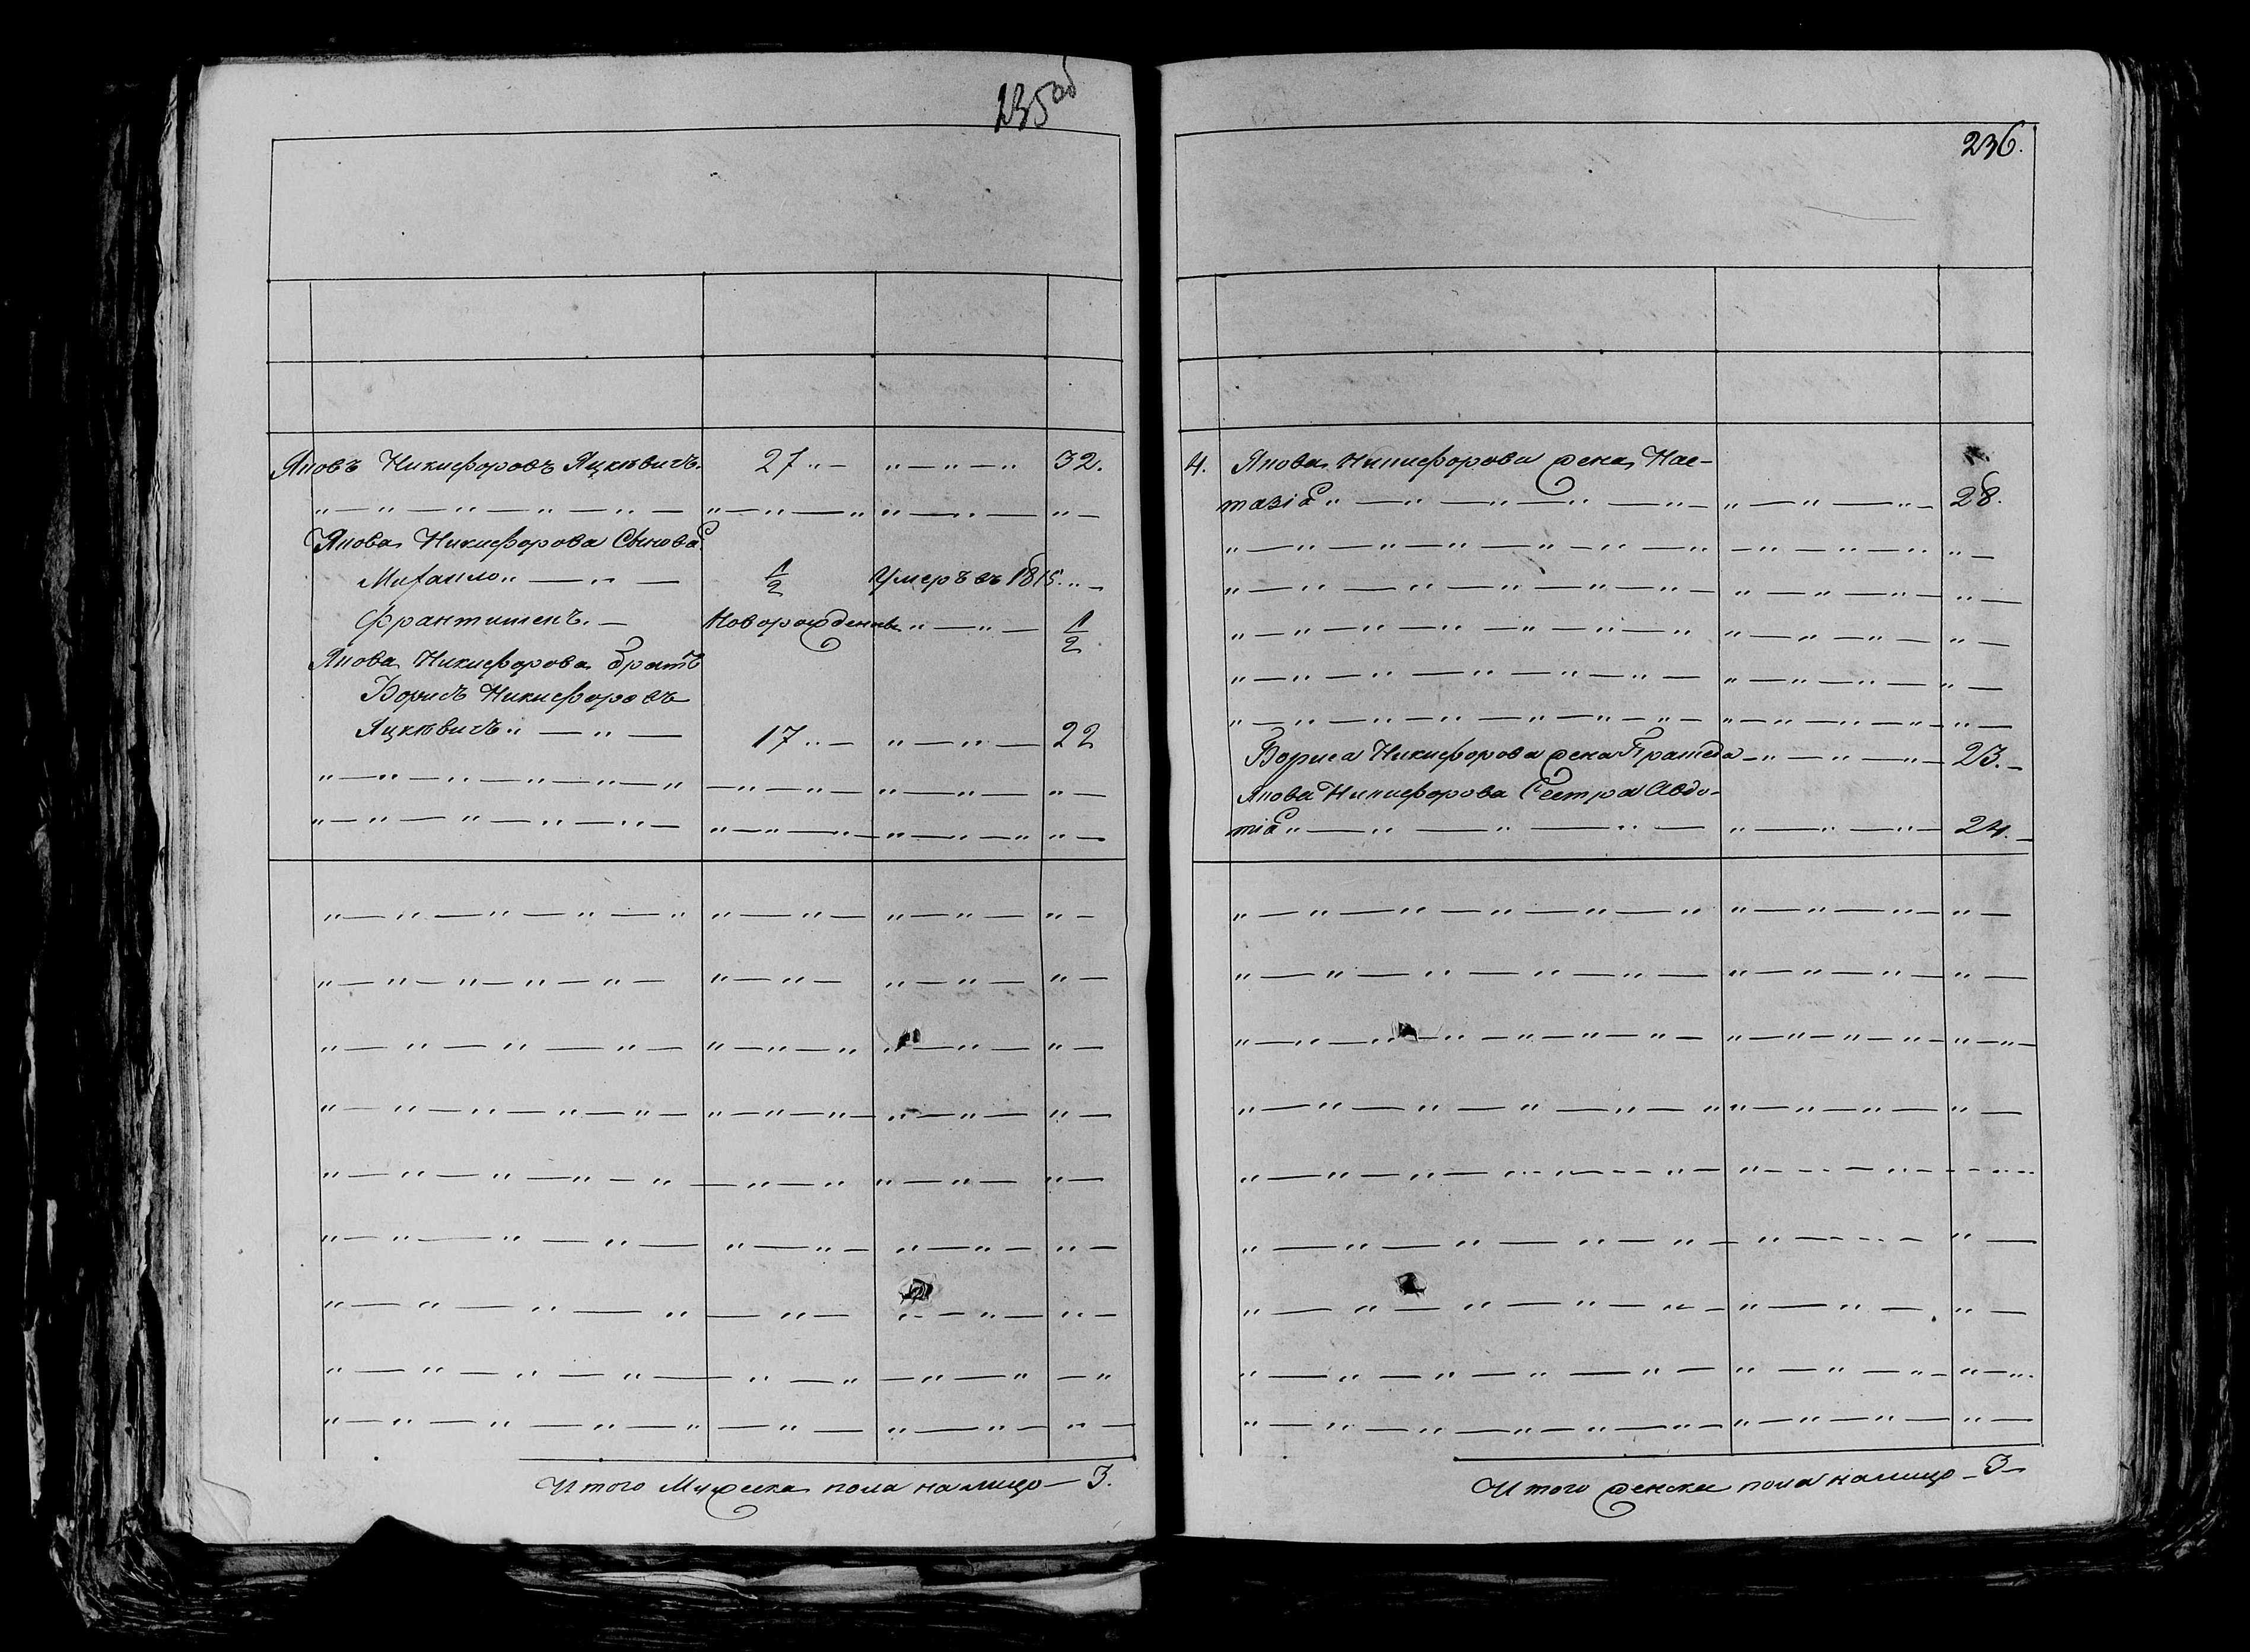 235об
Яковъ Никифоровъ Яцкевичъ. 27 32.
Якова Никифорова Сынова
Михайло 1/2 Умеръ въ 1815.
Францишекъ. Новорожденъ 1/2
Якова Никифорова братъ
Борисъ Никифоровъ
Яцкевичъ 17 22
Итого Мужеска пола налицо 3.
236.
4. Якова Никифорова жена Нас-
тазіа 28.
Бориса Никифорова жена 23.
Якова Никифорова Сестра Авдо-
тіа 24.
Итого женска пола налицо 3